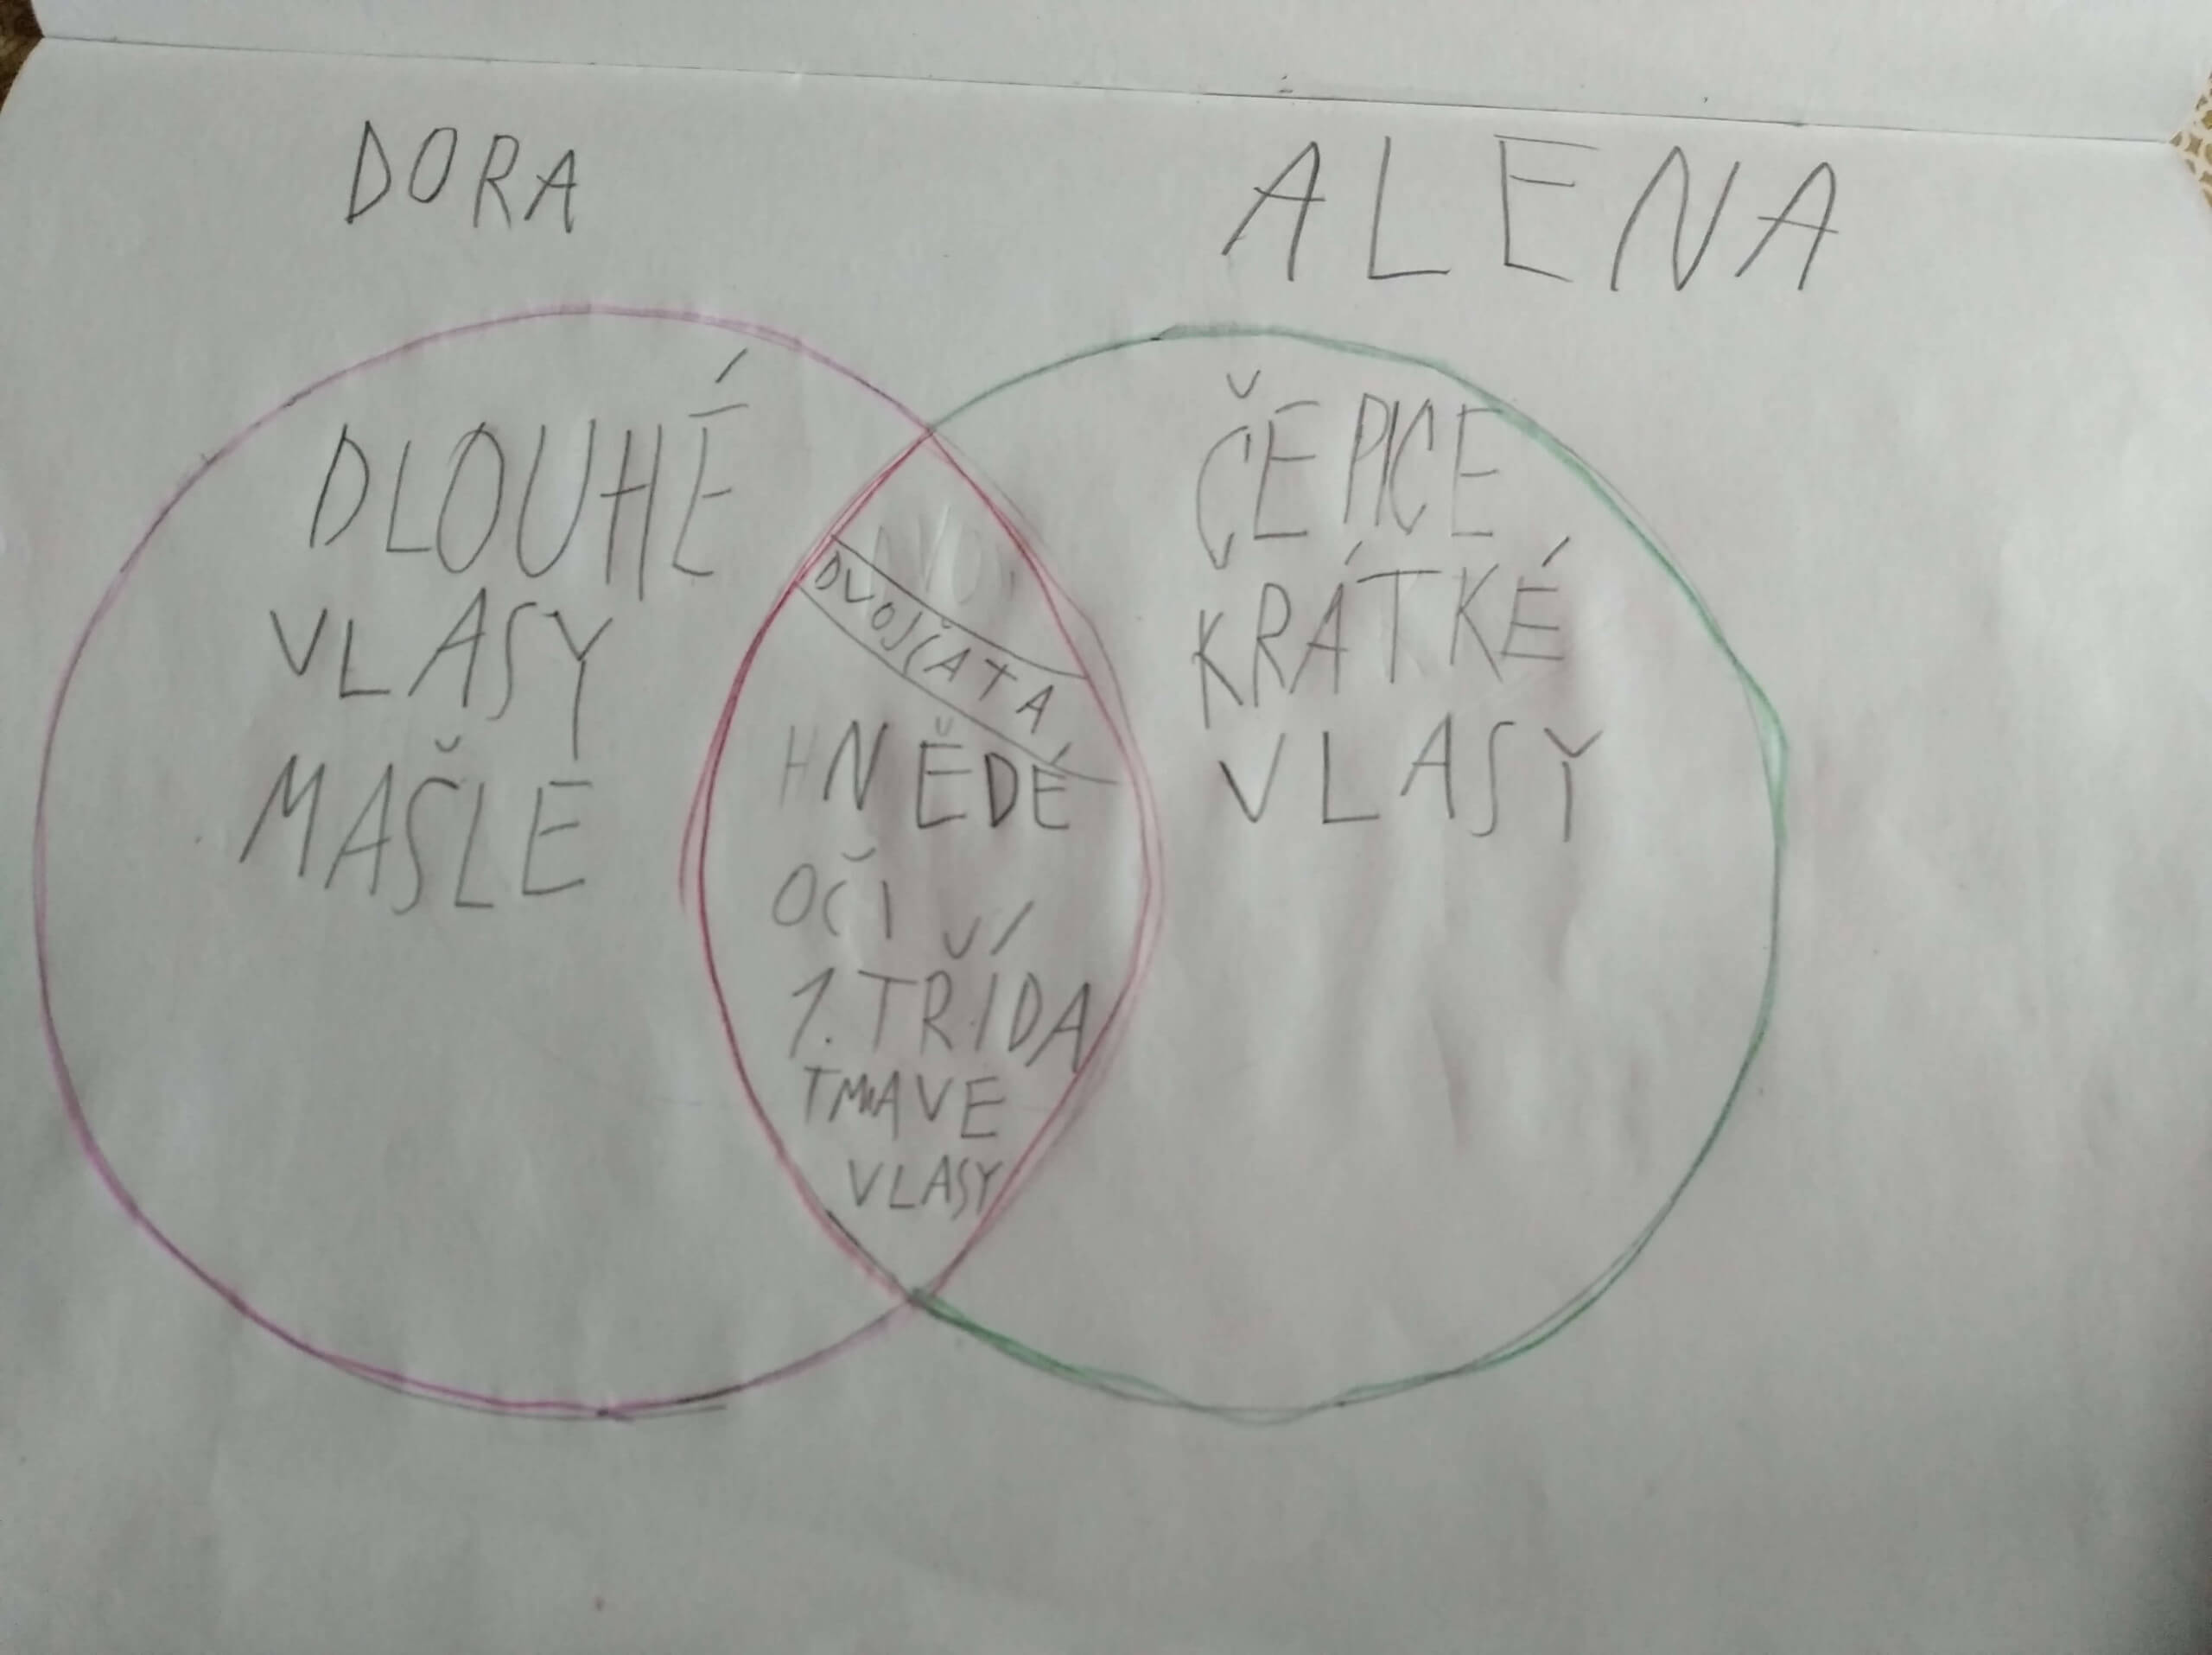 DORA
ALENA
DLOUHÉ
VLASY
MAŠLE
DVOJČATA
HNĚDÉ
OČI
1. TŘÍDA
TMAVE
VLASY
ČEPICE
KRÁTKÉ
VLASY